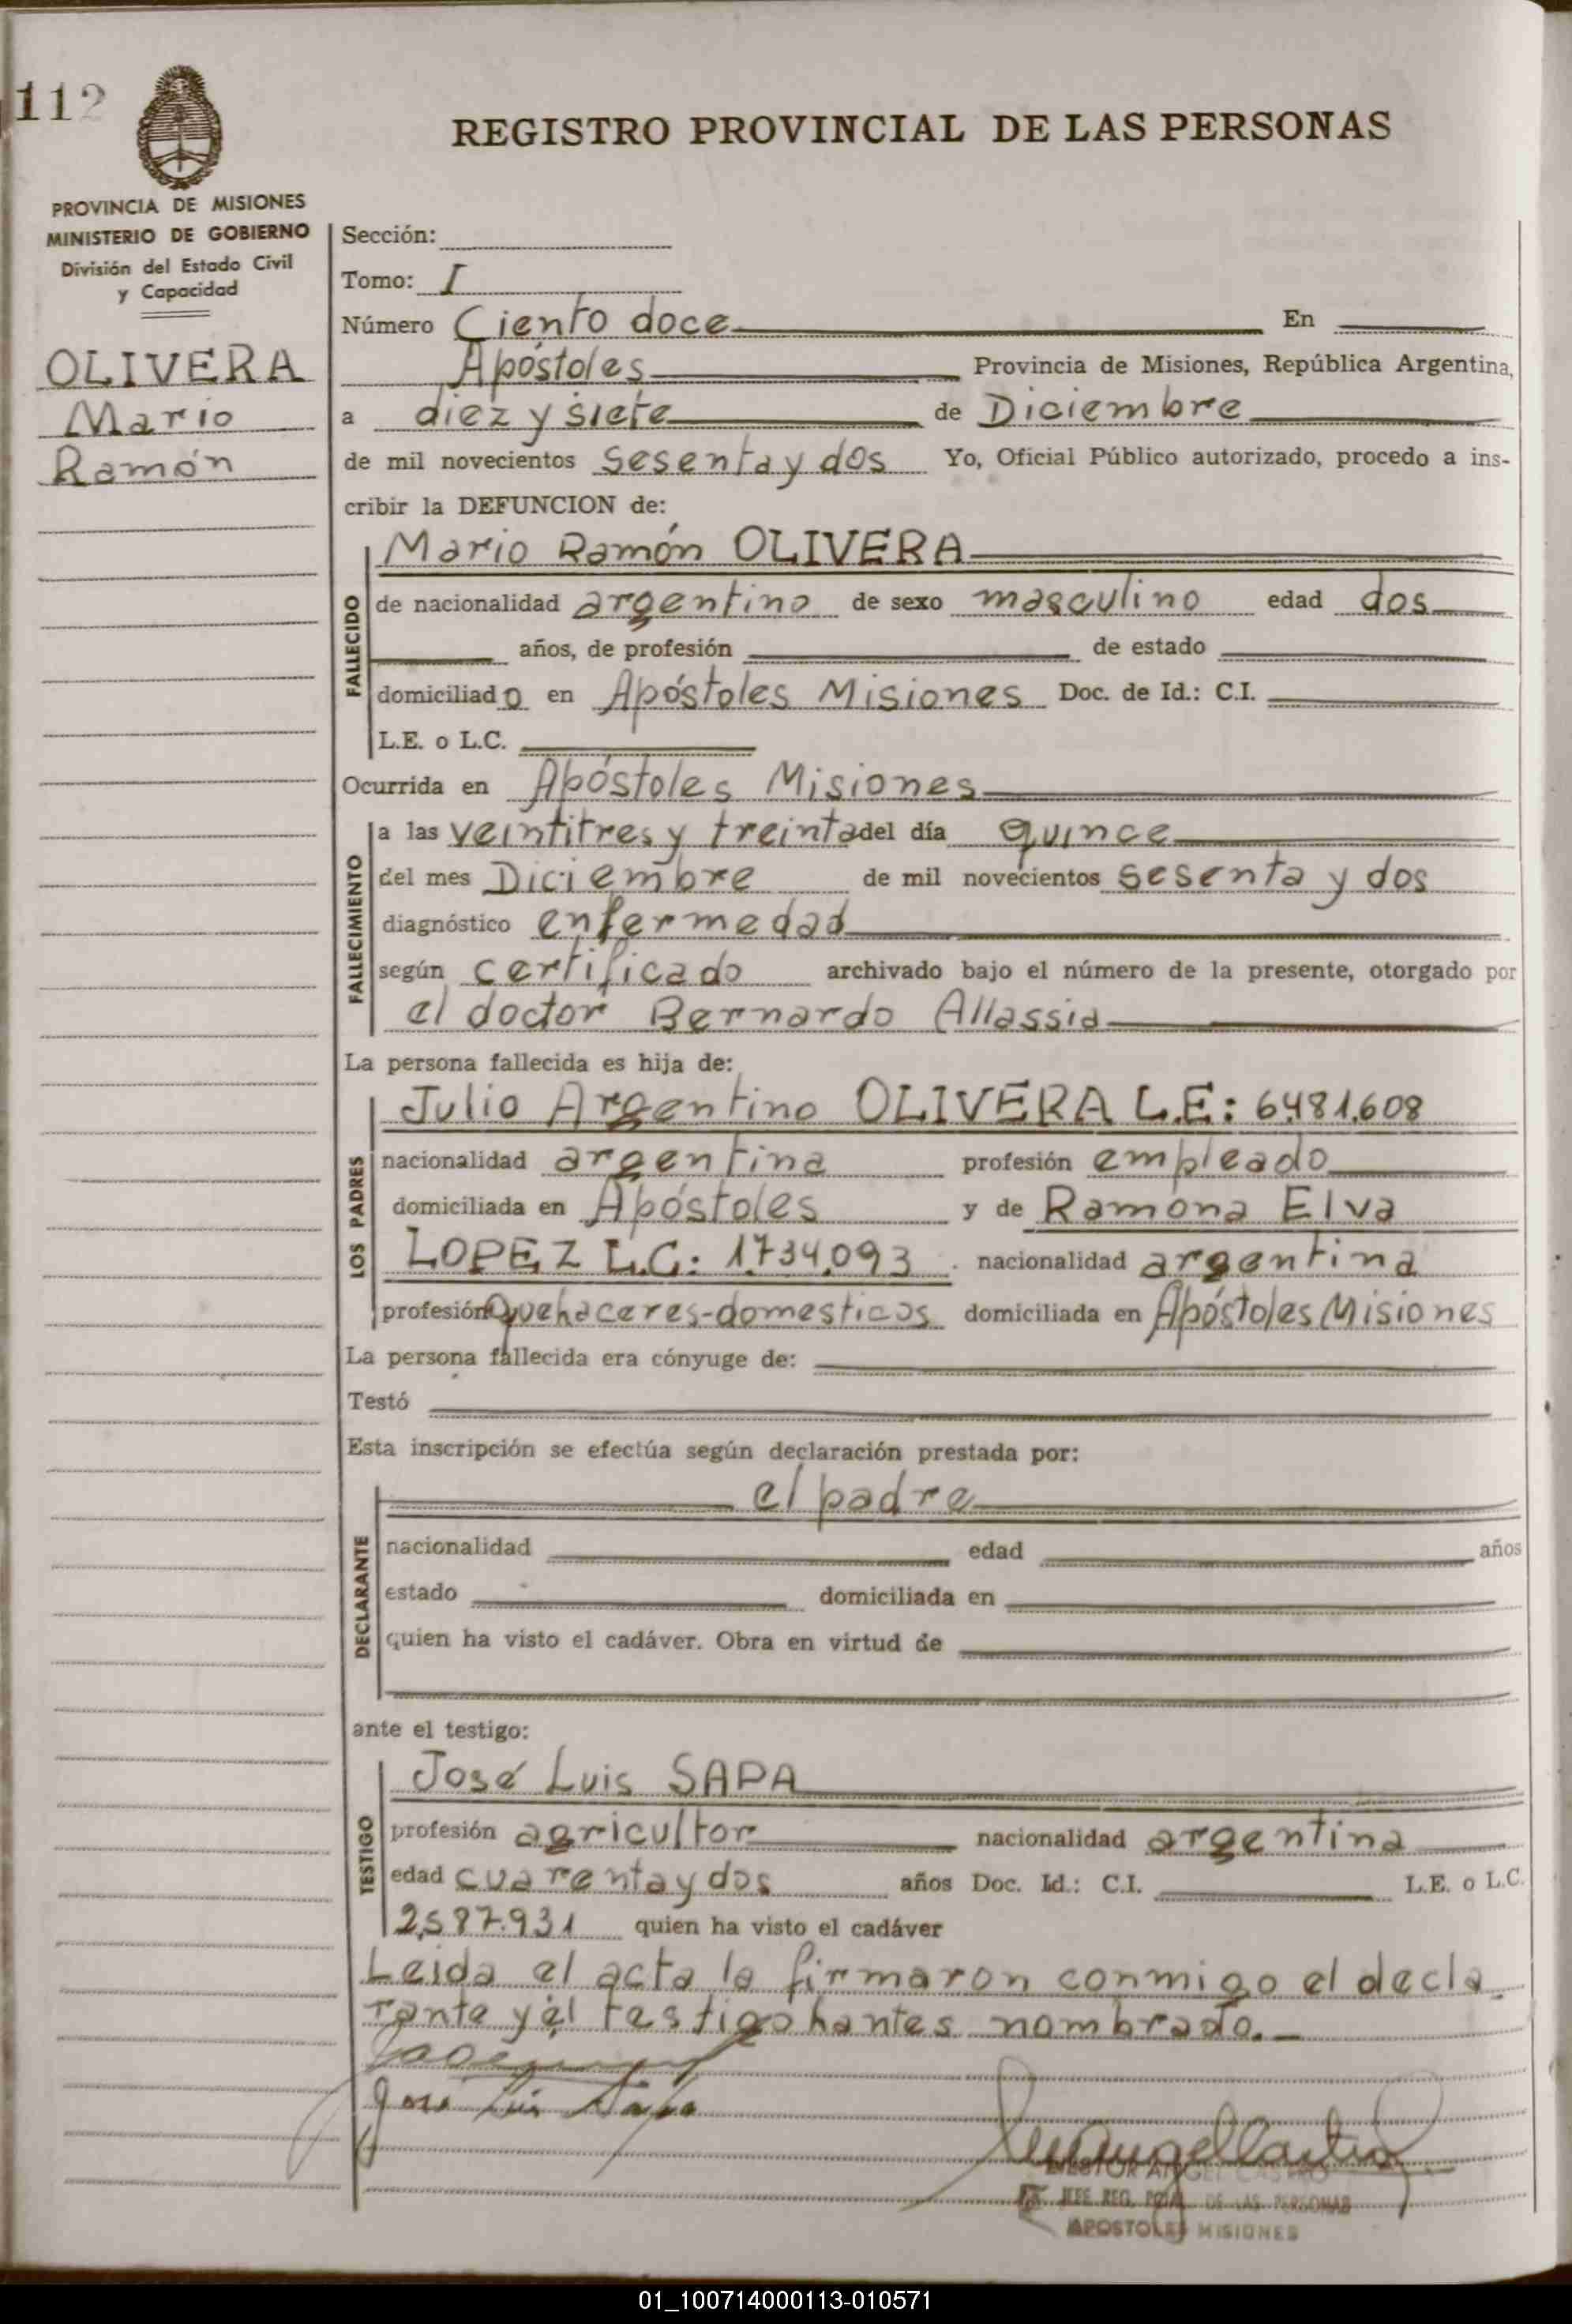 112
REGISTRO PROVINCIAL DE LAS PERSONAS
PROVINCIA DE MISIONES
MINISTERIO DE GOBIERNO
División del Estado Civil
y Capacidad
OLIVERA
Mario
Ramón
Sección:
Tomo: I
Número Ciento doce En
Apóstoles Provincia de Misiones, República Argentina,
a diez y siete de Diciembre
de mil novecientos sesenta y dos Yo, Oficial Público autorizado, procedo a ins-
cribir la DEFUNCION de:
FALLECIDO
Mario Ramón OLIVERA
de nacionalidad argentino de sexo masculino edad dos
años, de profesión de estado
domiciliado en Apóstoles Misiones Doc. de Id.: C.I.
L.E. o L.C.
Ocurrida en Apóstoles Misiones
FALLECIMIENTO
a las veintitres y treinta del día quince
del mes Diciembre de mil novecientos sesenta y dos
diagnóstico enfermedad
según certificado archivado bajo el número de la presente, otorgado por
el doctor Bernardo Allassia
La persona fallecida es hija de:
LOS PADRES
Julio Argentino OLIVERA L.E: 6.481.608
nacionalidad argentina profesión empleado
domiciliada en Apóstoles y de Ramona Elva
LOPEZ L.C: 1.734.093 nacionalidad argentina
profesión Quehaceres-domesticos domiciliada en Apóstoles Misiones
La persona fallecida era cónyuge de:
Testó
Esta inscripción se efectúa según declaración prestada por:
DECLARANTE
el padre
nacionalidad edad años
estado domiciliada en
quien ha visto el cadáver. Obra en virtud de
ante el testigo:
TESTIGO
José Luis SAPA
profesión agricultor nacionalidad argentina
edad cuarenta y dos años Doc. Id.: C.I. L.E. o L.C.
2.587.931 quien ha visto el cadáver
Leida el acta la firmaron conmigo el decla
rante y el testigo hantes nombrado.
José Luis Sapa
NESTOR ANGEL CASTRO
JEFE REG. PCIAL. DE LAS PERSONAS
APOSTOLES MISIONES
01_100714000113-010571